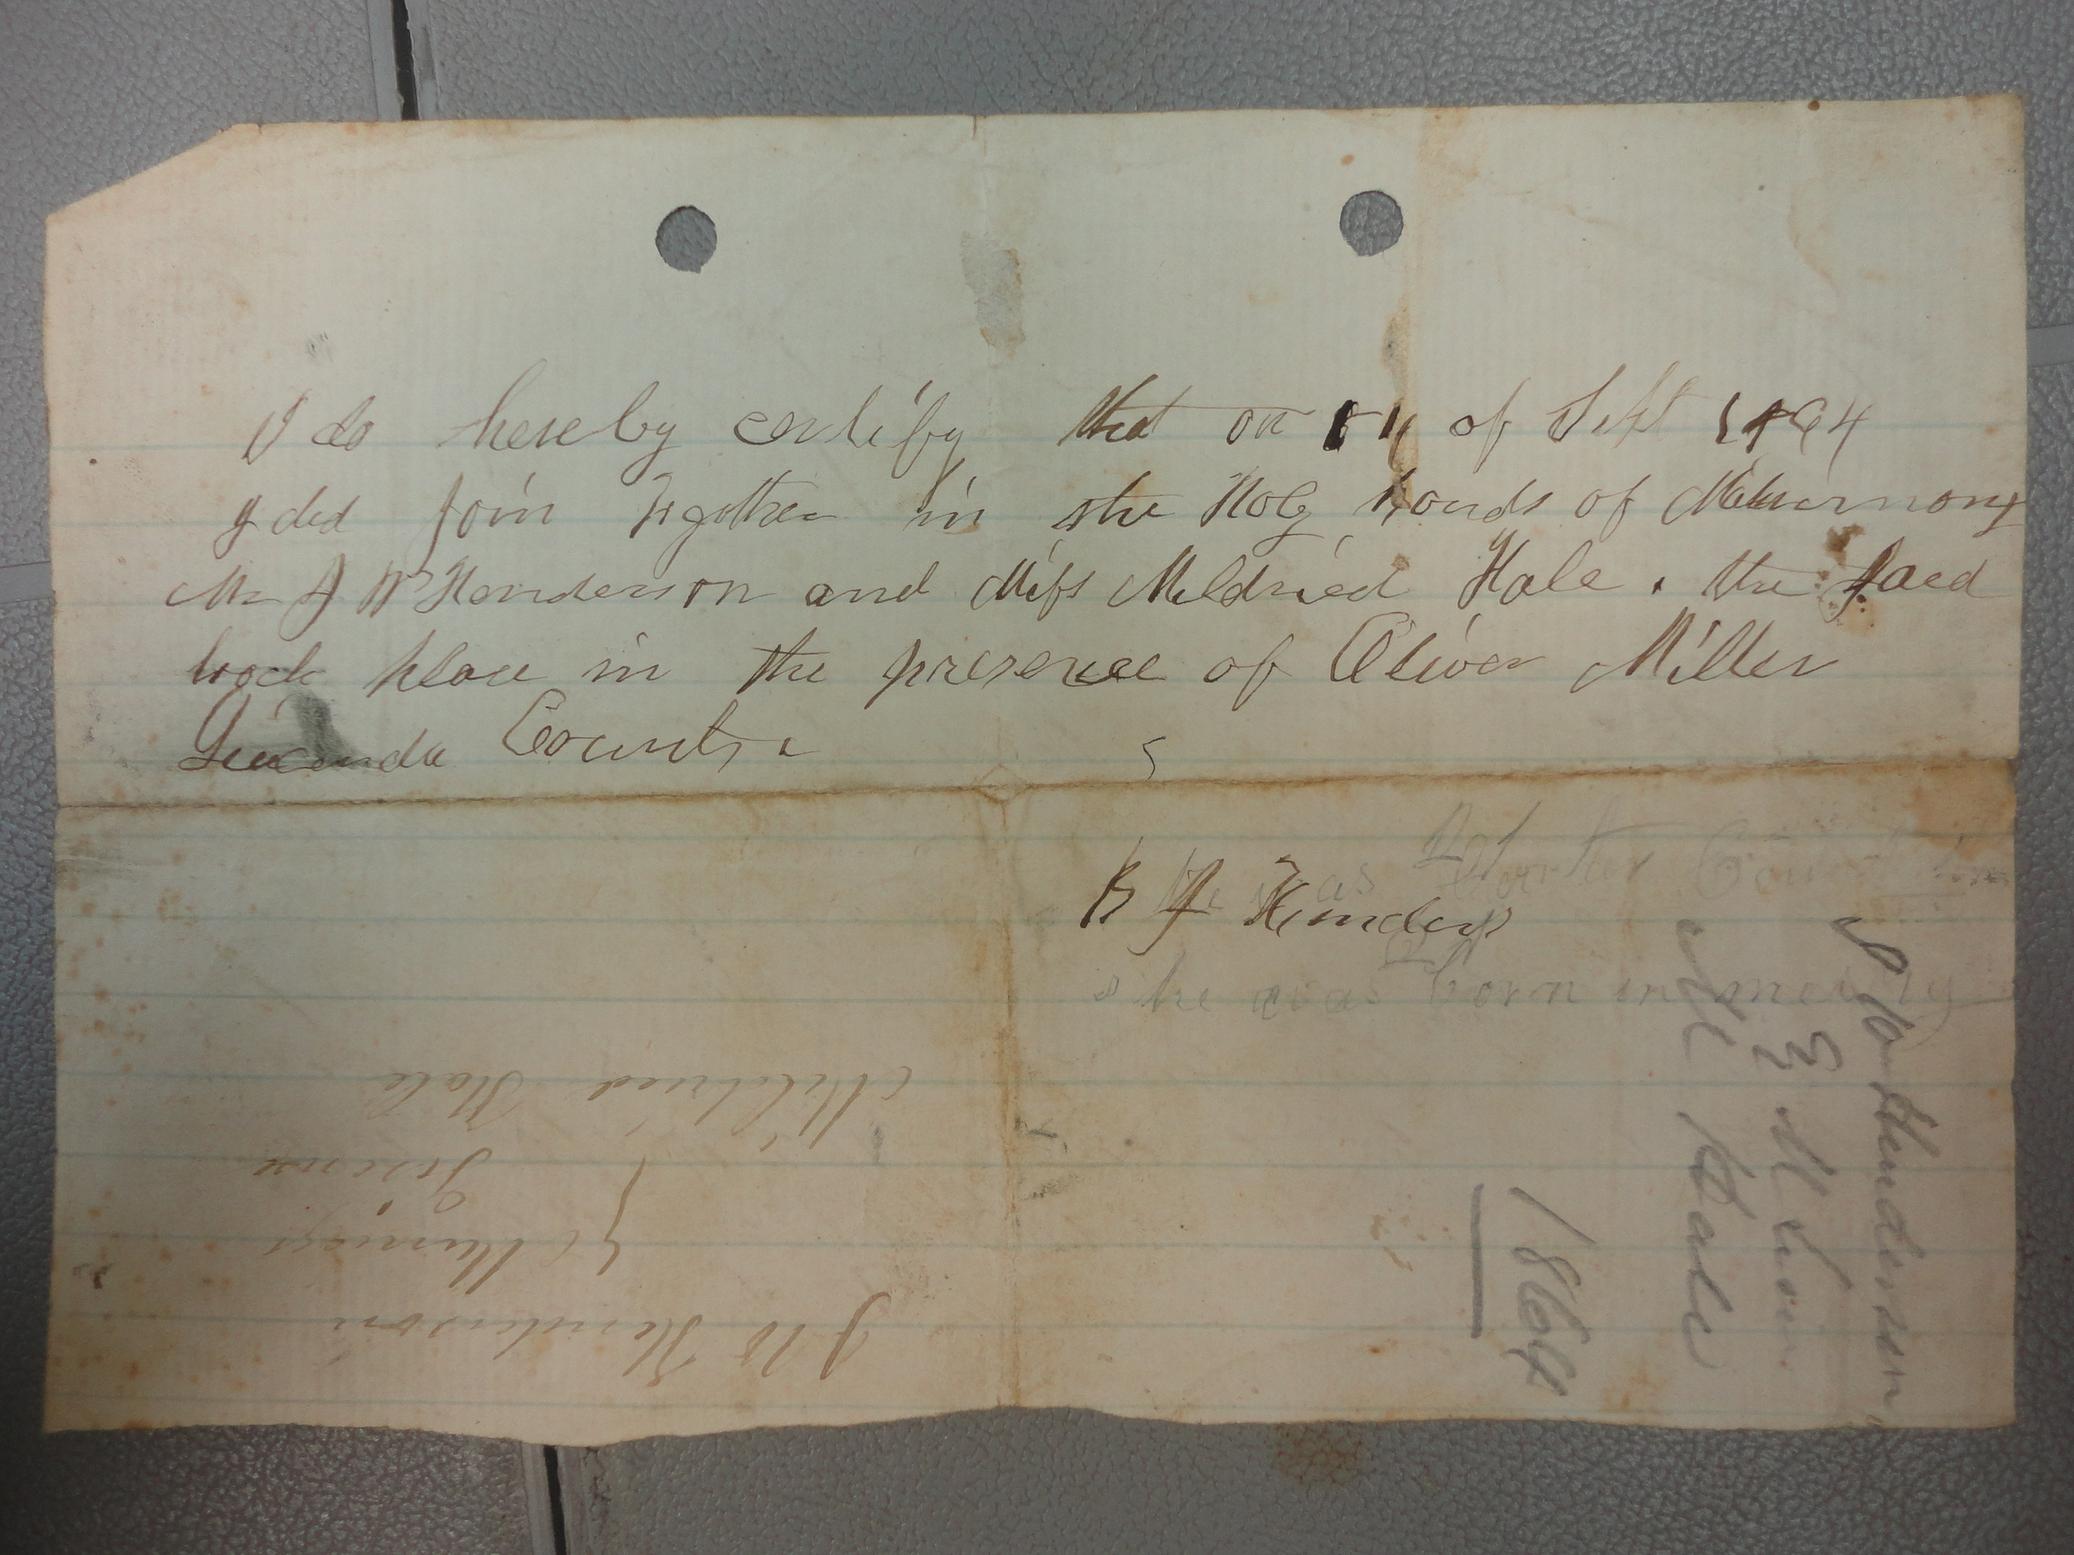 I do hereby certify that on of Sept 1864
I did join together in the Holy bonds of Matrimony
Mr J W Henderson and Miss Mildried Hale . the said
took place in the presence of Oliver Miller
Lucinda Counts.
B J Kinder
he was born in
J W Henderson
Mildried Hale
J W Henderson
M Hale
1864